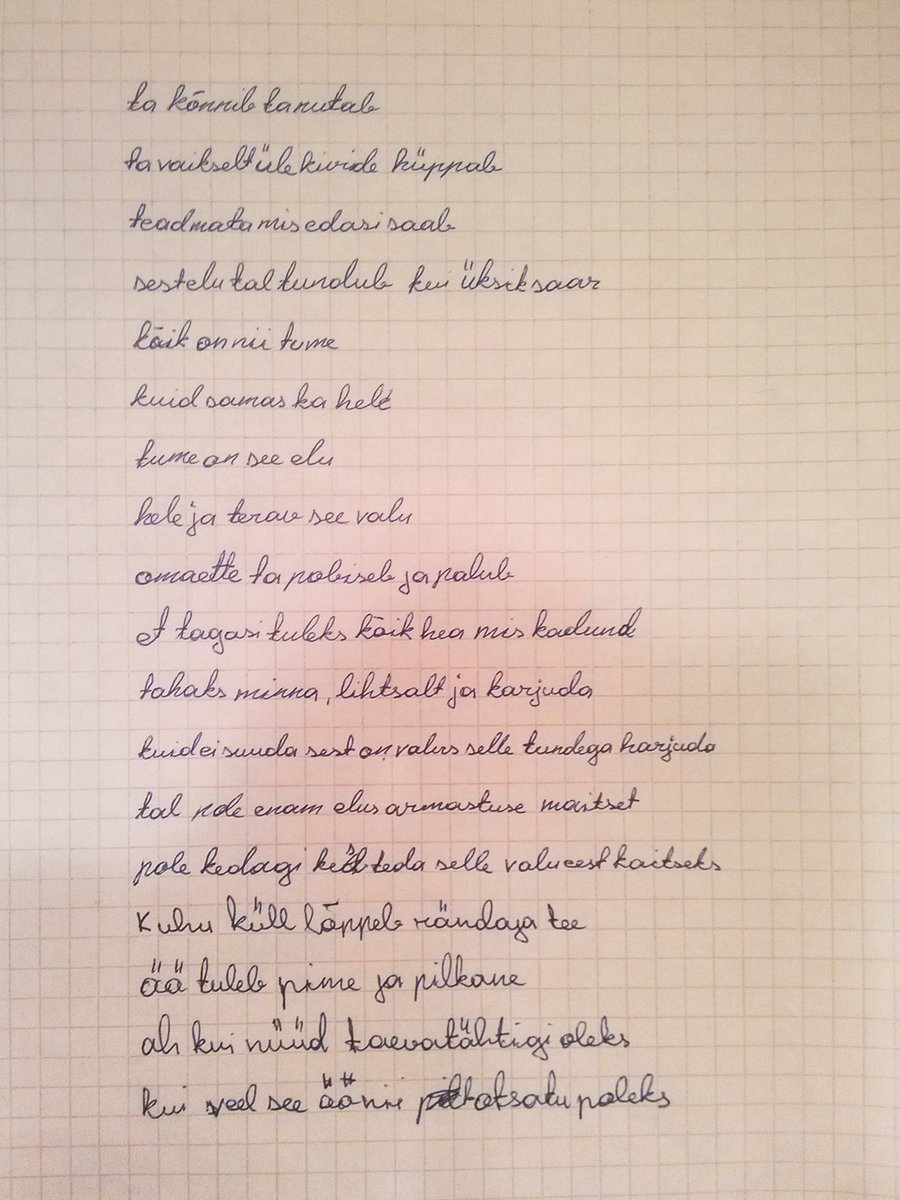 ta kõnnib tanutab
ta vaikselt üle kivide hüppab
teadmata mis edasi saab
sest elu tal tundub kui üksik saar
kõik on nii tume
kuid samas ka hele
tume on see elu
hele ja terav see valu
omaette ta pobiseb ja palub
et tagasi tuleks kõik hea mis kadund
tahaks minna, lihtsalt ja karjuda
kuid ei suuda sest on valus selle tundega harjuda
tal pole enam elus armastuse maitset
pole kedagi kes teda selle valu eest kaitseks
Kuhu küll lõppeb rändaja tee
öö tuleb pime ja pilkane
ah kui nüüd taevatähtigi oleks
kui veel see öö nii otsatu poleks